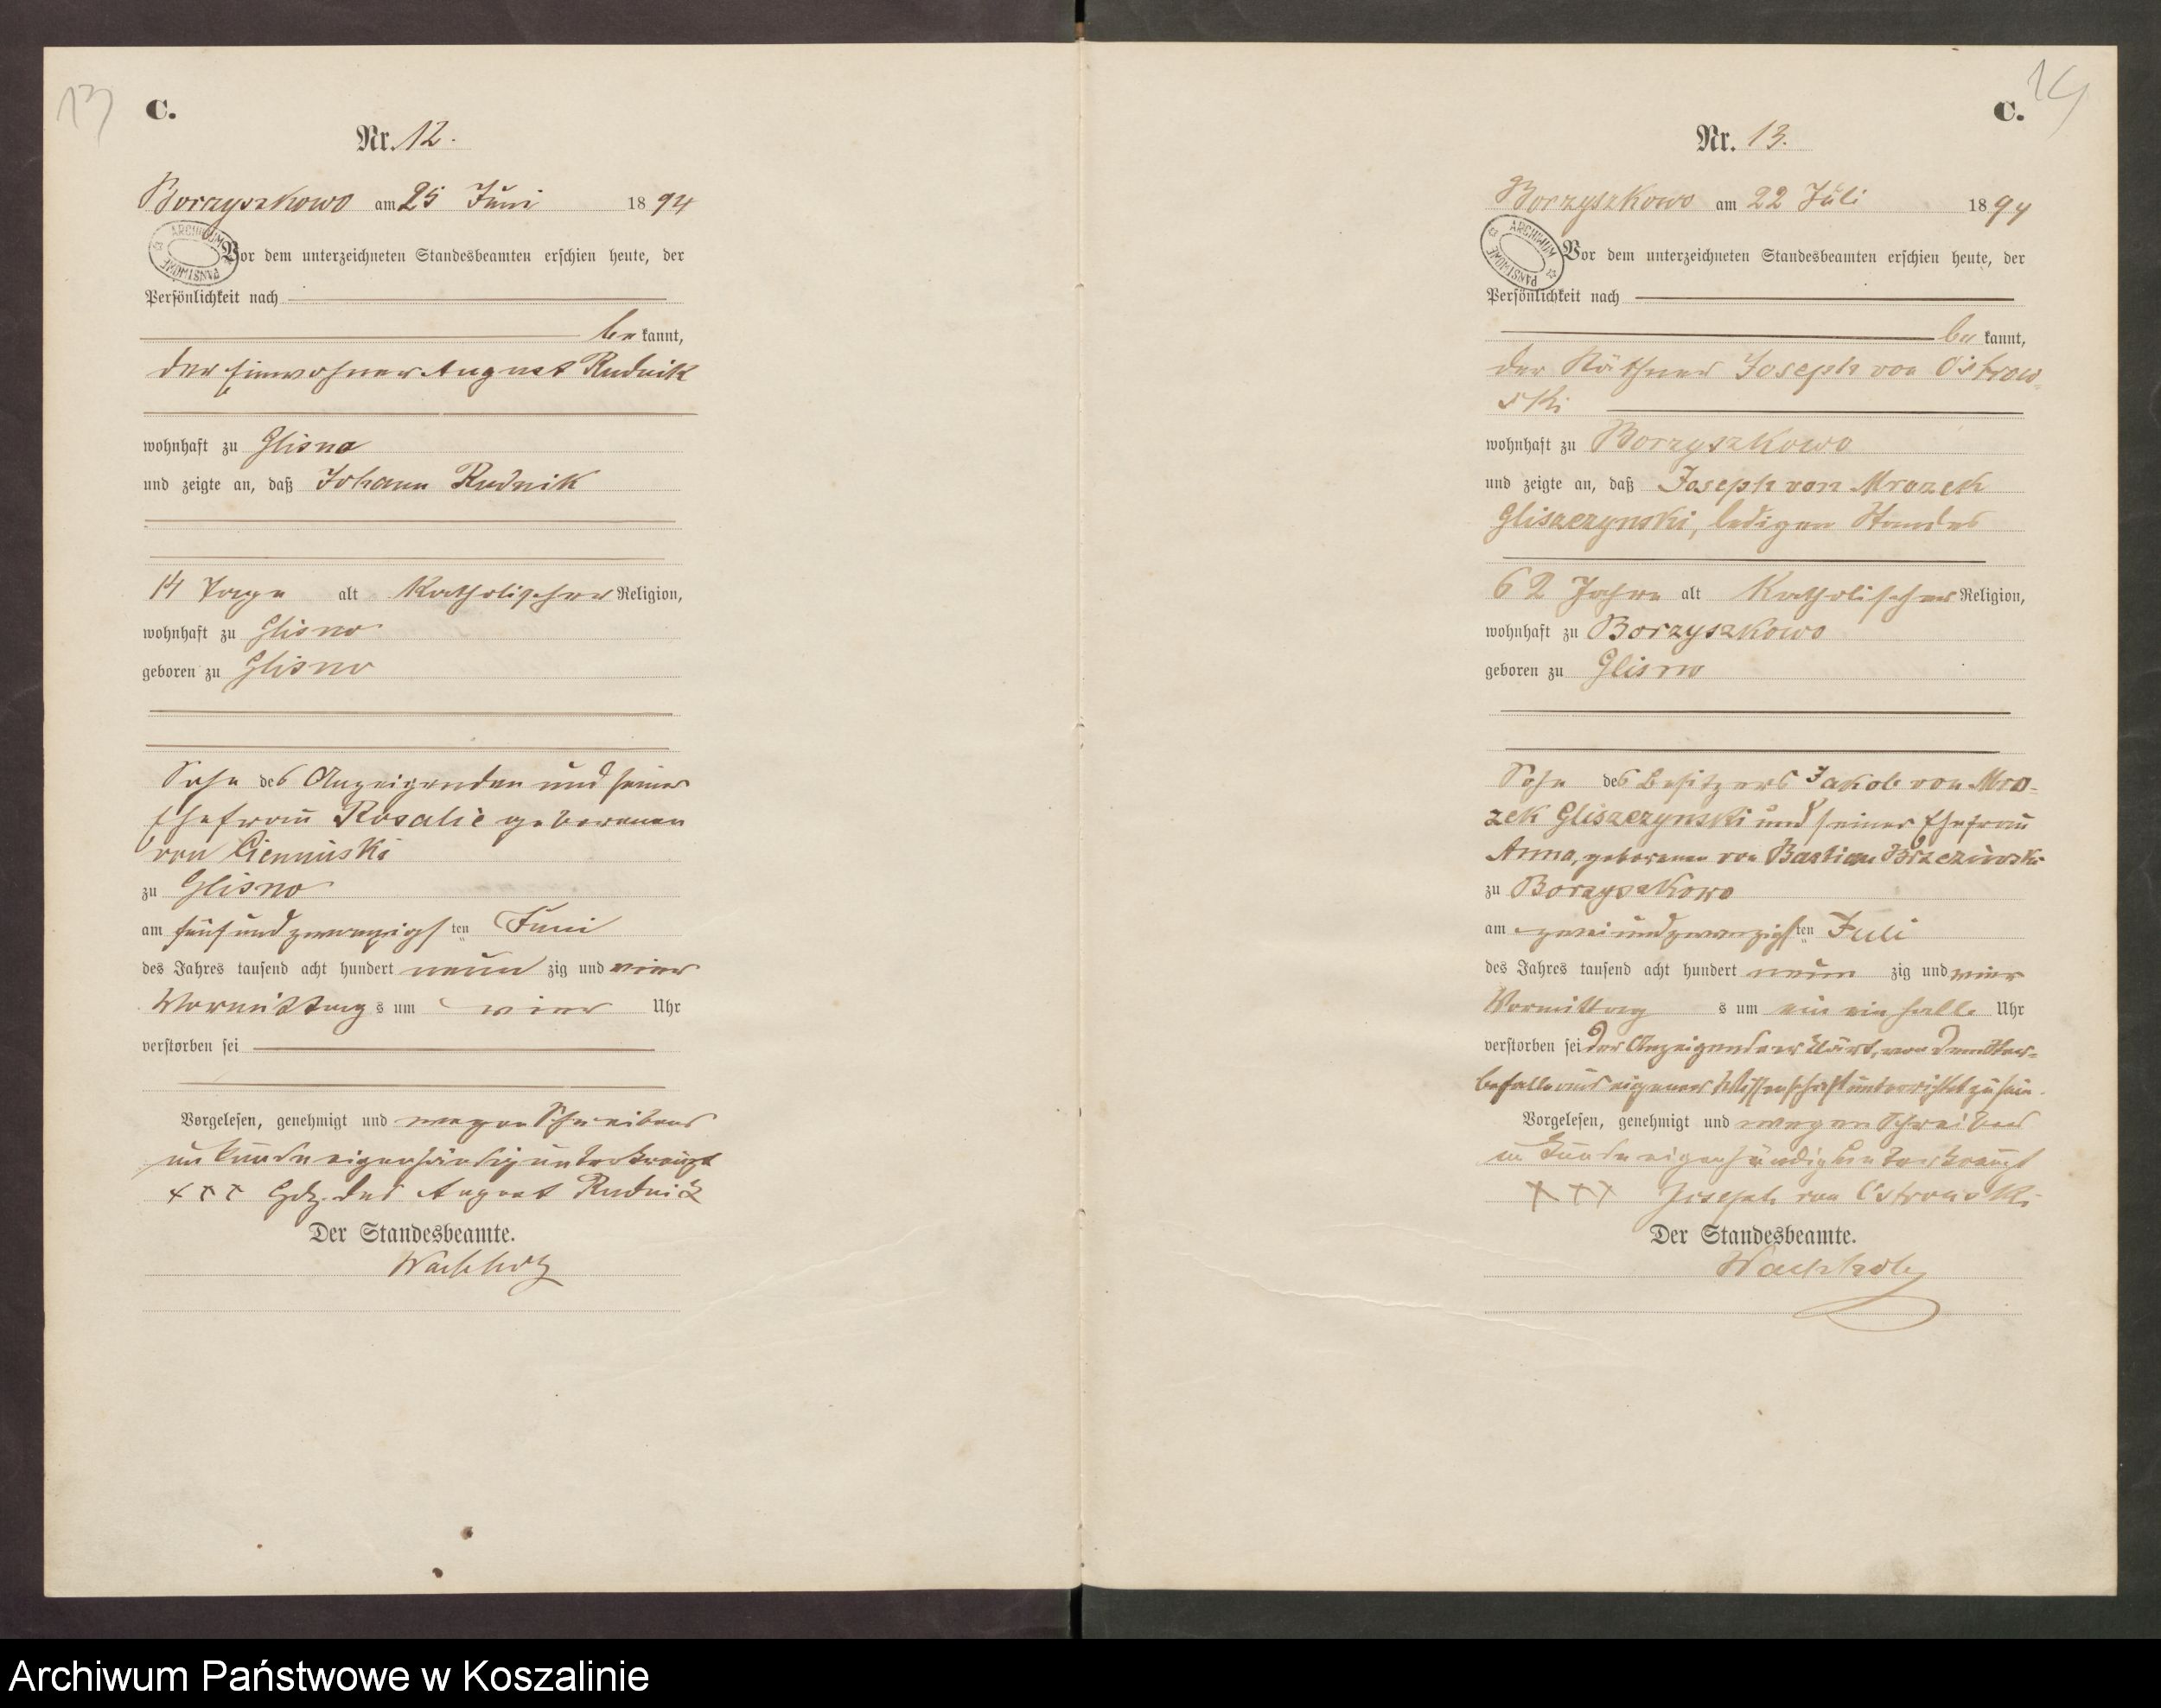 13
C.
Nr. 12.
Borzyszkowo am 25 Juni 1894
ARCHIWUM PAŃSTWOWE
Vor dem unterzeichneten Standesbeamten erschien heute, der
Persönlichkeit nach
be kannt,
der Einwohner August Rudnik
wohnhaft zu Glisno
und zeigte an, daß Johann Rudnik
14 Tage alt Katholischer Religion,
wohnhaft zu Glisno
geboren zu Glisno
Sohn des Anzeigenden und seiner
Ehefrau Rosalie geborenen
von
zu Glisno
am fünfundzwanzigsten Juni
des Jahres tausend acht hundert neun zig und vier
Vormittags um vier Uhr
verstorben sei
Vorgelesen, genehmigt und wegen Schreibens
unkunde eigenhändig unterkreuzt
xxx Hdz. des August Rudnik
Der Standesbeamte.
Wachholz
14
C.
Nr. 13.
Borzyszkowo am 22 Juli 1894
ARCHIWUM PAŃSTWOWE
Vor dem unterzeichneten Standesbeamten erschien heute, der
Persönlichkeit nach
be kannt,
der Käthner Joseph von Ostrow-
ski
wohnhaft zu Borzyszkowo
und zeigte an, daß Joseph von Mrozek
Gliszczynski, ledigen Standes
62 Jahre alt Katholischer Religion,
wohnhaft zu Borzyszkowo
geboren zu Glisno
Sohn des Besitzers Jakob von Mro-
zek Gliszczynski und seiner Ehefrau
Anna, geborenen von Bastian
zu Borzyszkowo
am zweiundzwanzigsten Juli
des Jahres tausend acht hundert neun zig und vier
Vormittag s um ein ein halb Uhr
verstorben sei der Anzeigende erklärt, von dem Ster-
befalle aus eigener Wissenschaft unterrichtet zu sein.
Vorgelesen, genehmigt und wegen Schreibens
unkunde eigenhändig unterkreuzt
xxx Joseph von Ostrowski
Der Standesbeamte.
Wachholz
Archiwum Państwowe w Koszalinie